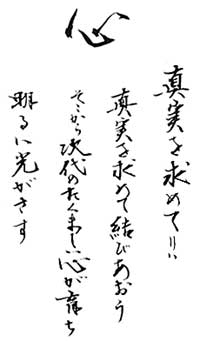 心
真実を求めて
真実を求めて結びあおう
そこから次代のたくましい心が育ち
明るい光がさす